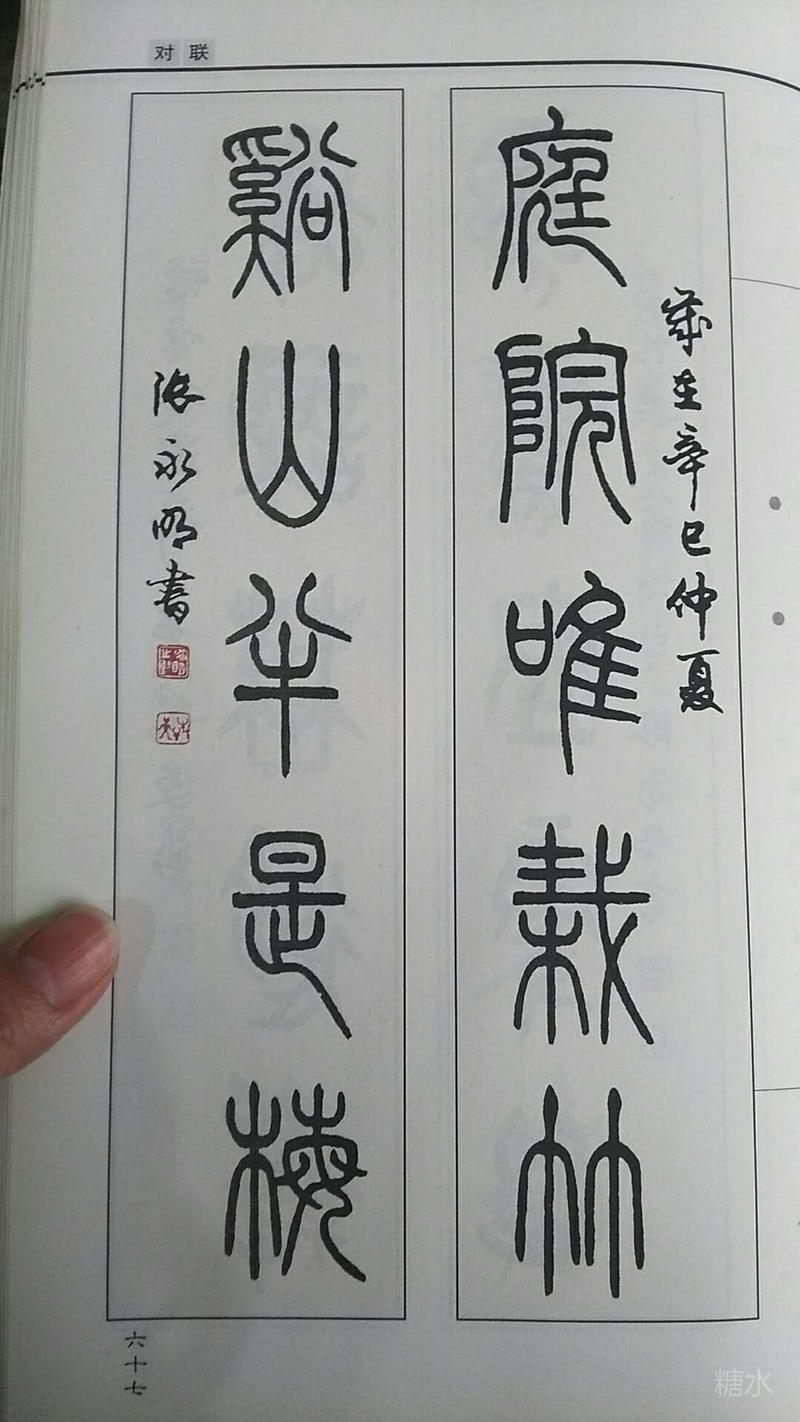 对联
歲在辛巳仲夏
庭院唯栽竹
谿山半是梅
張永明書
六十七
糖水